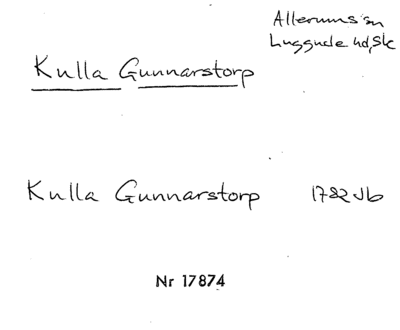 Allerums sn
Luggude hd, Sk
Kulla Gunnarstorp
Kulla Gunnarstorp 1782 Jb
Nr 17874